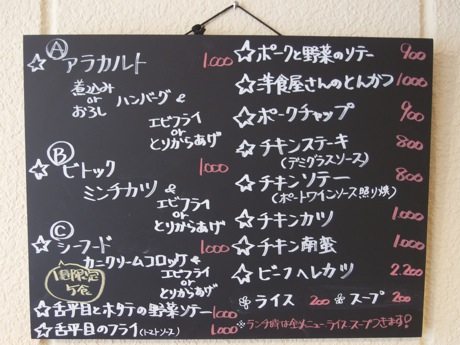 Ⓐ
☆アラカルト 1.000
煮込み
or
おろし
ハンバーグ &
エビフライ
or
とりからあげ
Ⓑ
☆ビトック 1.000
ミンチカツ &
エビフライ
or
とりからあげ
Ⓒ
☆シーフード 1.000
カニクリームコロッケ &
エビフライ
or
とりからあげ
☆舌平目とホタテの野菜ソテー 1.000
☆舌平目のフライ(トマトソース) 1.000
☆ポークと野菜のソテー 900
☆洋食屋さんのとんかつ 1.000
☆ポークチャップ 900
☆チキンステーキ 800
(デミグラスソース)
☆チキンソテー 800
(ポートワインソース照り焼)
☆チキンカツ 1.000
☆チキン南蛮 1.000
☆ビーフヘレカツ 2.200
ライス 200 スープ 200
※ランチ時は全メニューライススープつきます!